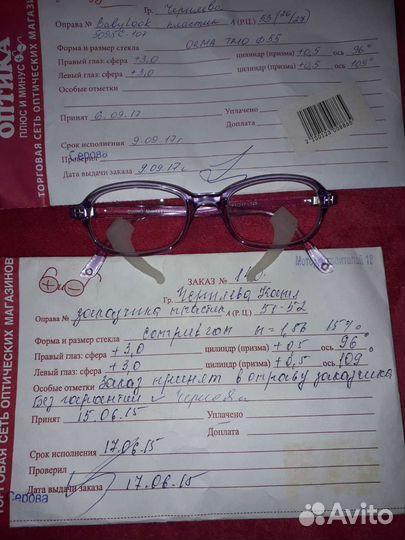 Гр. Чернлева
Оправа № Babybook пластик А (Р.Ц.) 53 (26/27)
5095С-107
Форма и размер стекла ORMA TMO Ф55
Правый глаз: сфера +3,0 цилиндр (призма) +0,5 ось 96°
Левый глаз: сфера +3,0 цилиндр (призма) +0,5 ось 109°
Особые отметки
Принят 6.09.17 Уплачено
Доплата
Срок исполнения 9.09.17г
Проверил
Серова
Дата выдачи заказа 9.09.17г.
ОПТИКА
ПЛЮС И МИНУС
ТОРГОВАЯ СЕТЬ ОПТИЧЕСКИХ МАГАЗИНОВ
ЗАКАЗ №
18
Гр.
Оправа № заказчика пластик А (Р.Ц.) 51-52
Форма и размер стекла n=1,56 15%
Правый глаз: сфера +3,0 цилиндр (призма) +0,5 ось 96°
Левый глаз: сфера +3,0 цилиндр (призма) +0,5 ось 109°
Особые отметки Заказ принят в оправу заказчика
Без гарантии
Принят 15.06.15 Уплачено
Доплата
Срок исполнения 17.06.15
Проверил
Дата выдачи заказа 17.06.15
Серова
ТОРГОВАЯ СЕТЬ ОПТИЧЕСКИХ МАГАЗИНОВ
Avito